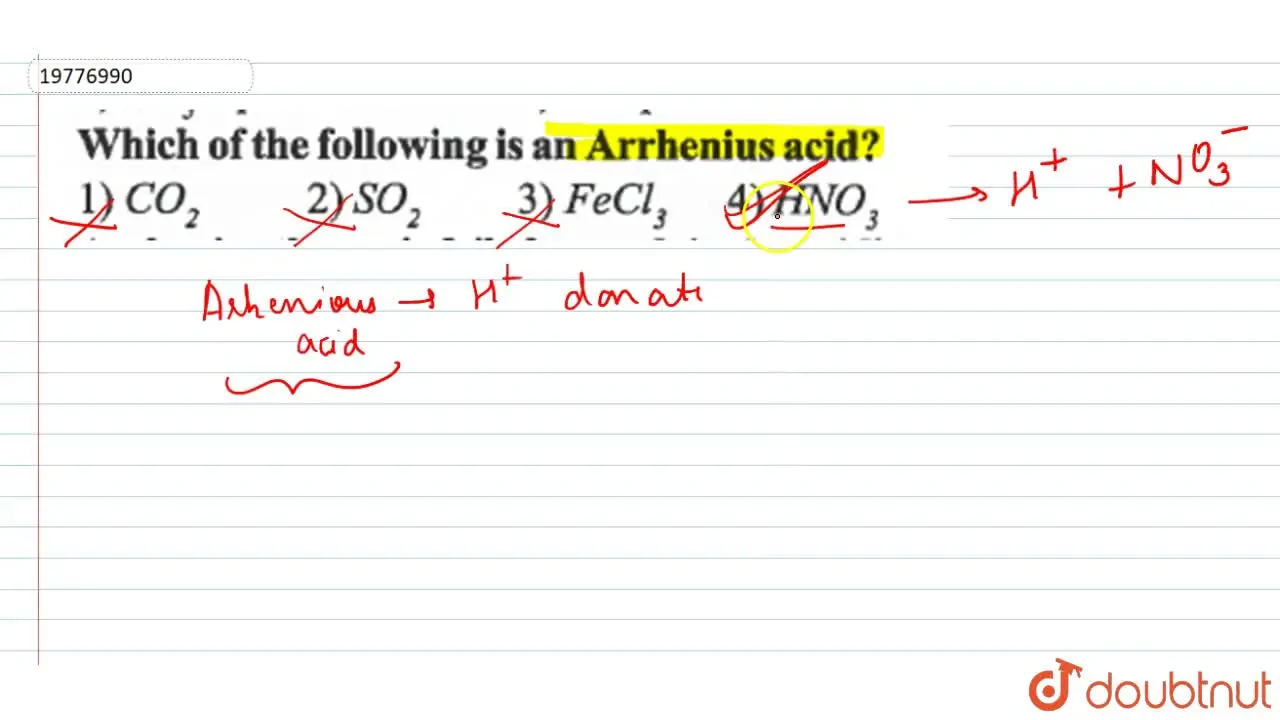 19776990
Which of the following is an Arrhenius acid?
1) CO₂ 2) SO₂ 3) FeCl₃ 4) HNO₃ → H⁺ + NO₃⁻
Arhenious → H⁺ donate
acid
doubtnut